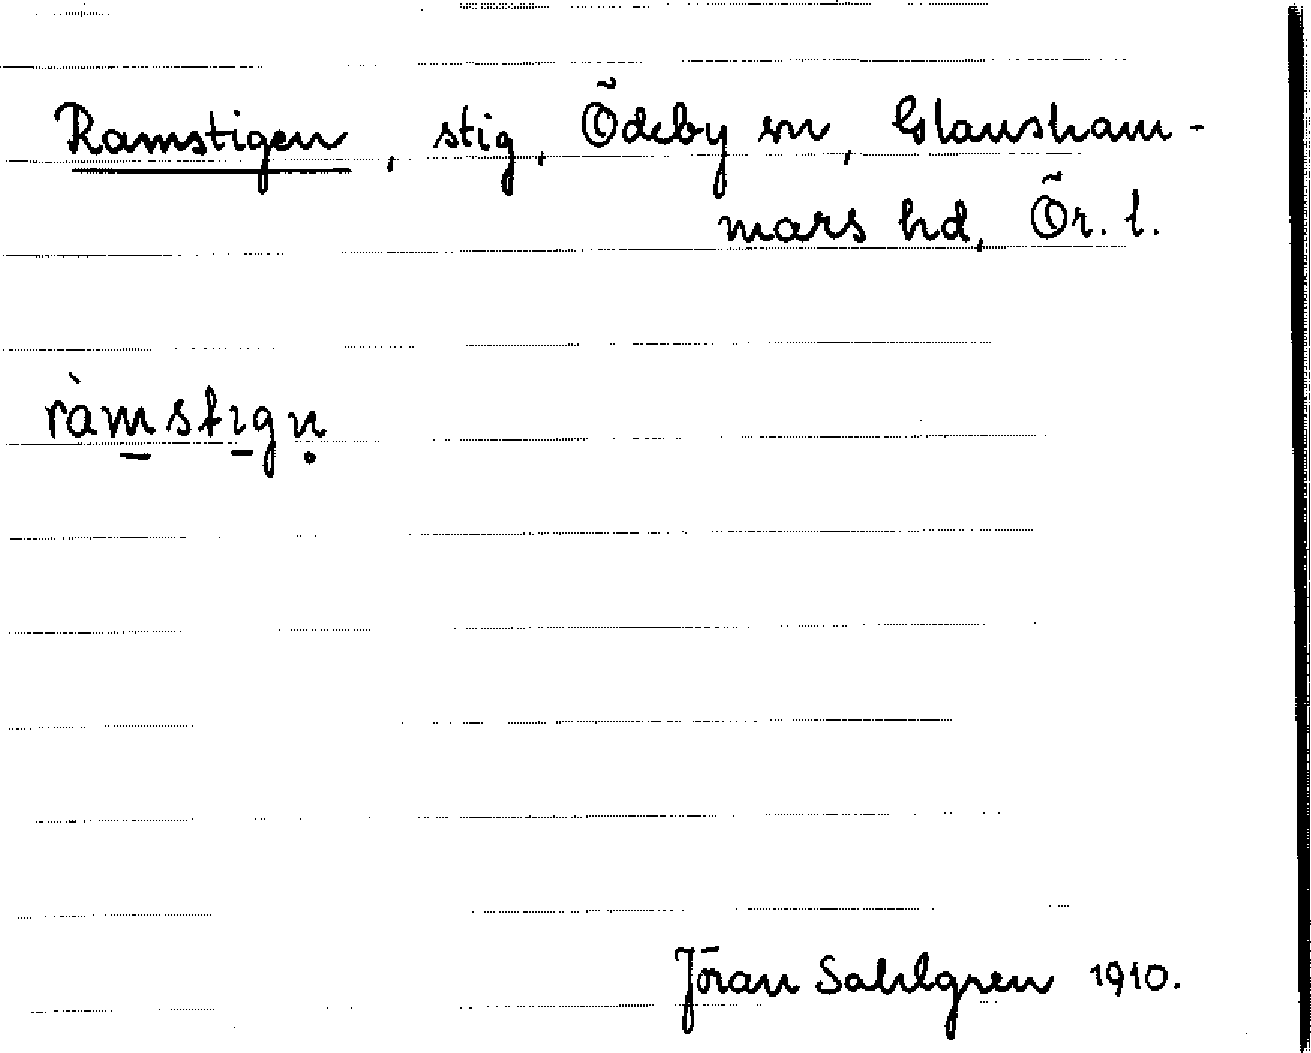 Ramstigen, stig, Ödeby sn, Glansham-
mars hd, Ör. l.
ràm̱stı̱gn̥
Jöran Sahlgren 1910.